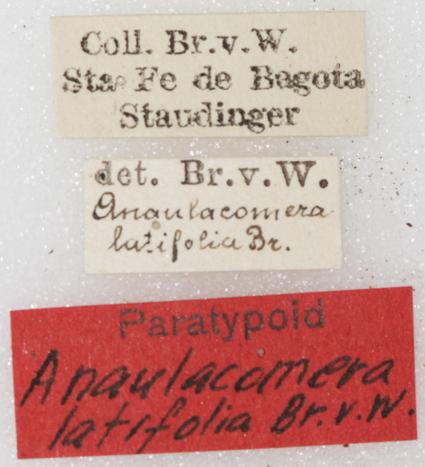 Coll. Br.v.W.
Sta Fe de Bogota
Staudinger
det. Br.v.W.
Anaulacomera
latifolia Br.
Paratypoid
Anaulacomera
latifolia Br.v.W.